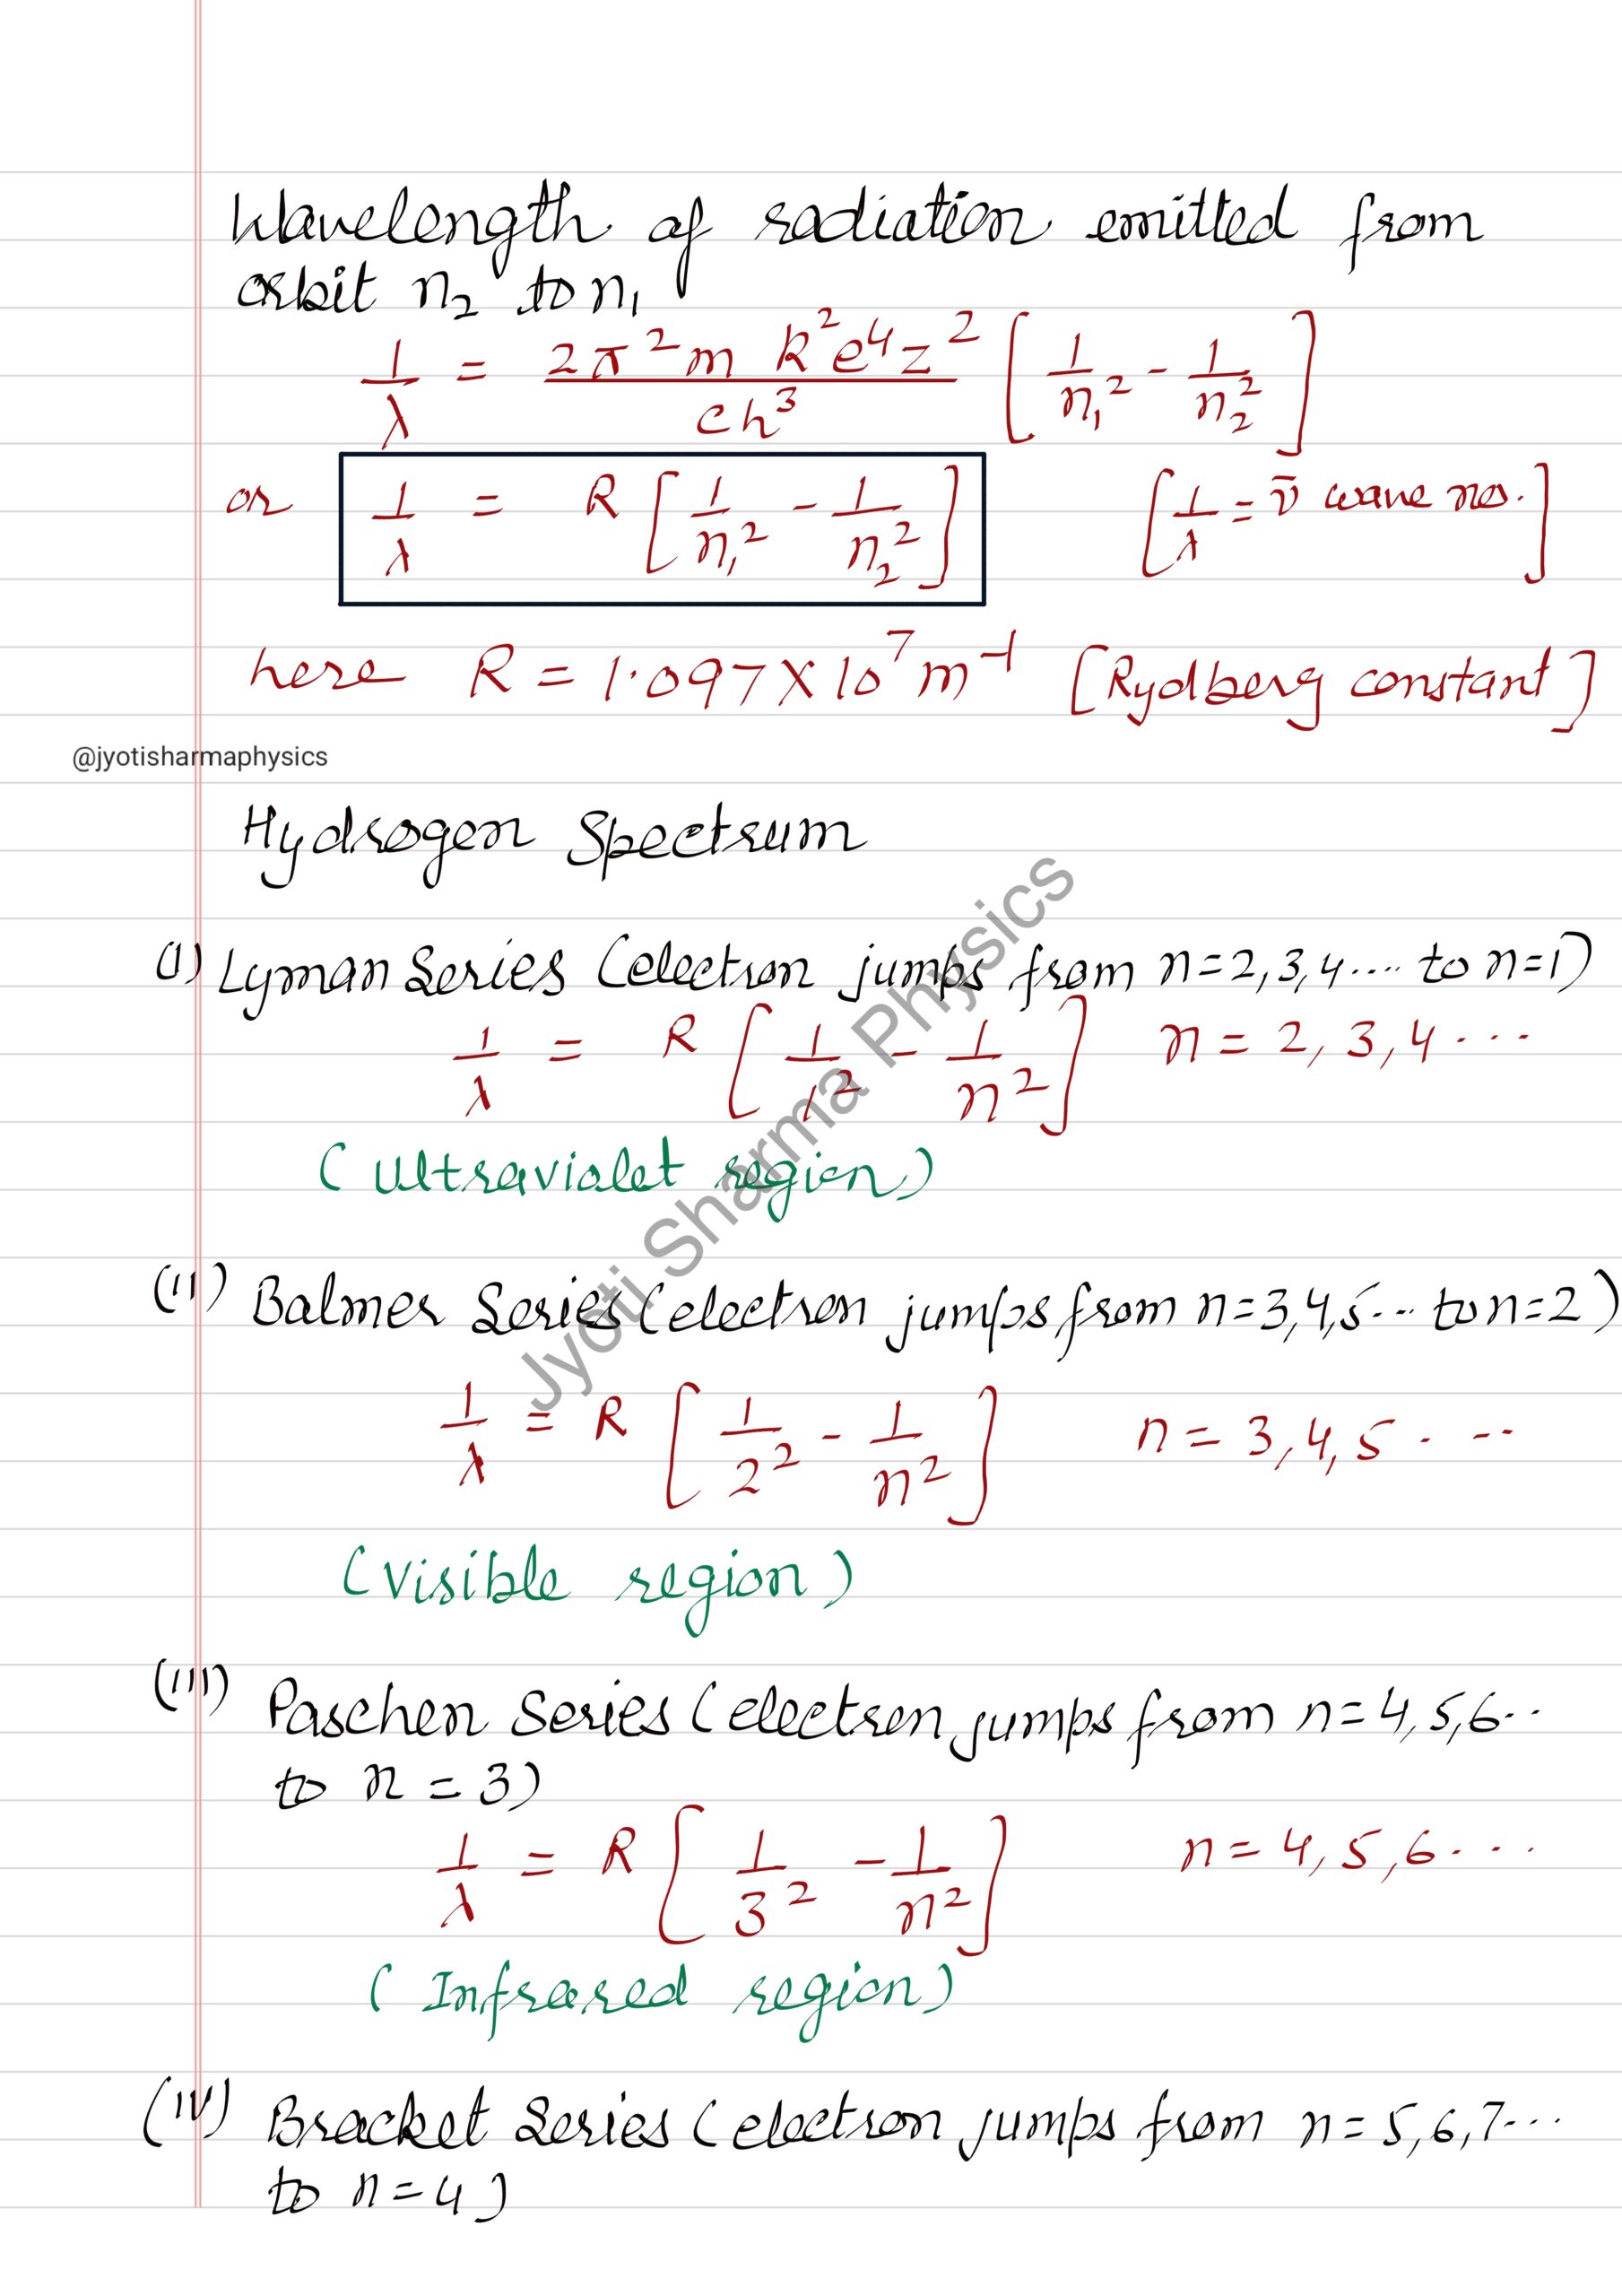 Wavelength of radiation emitted from
orbit n₂ to n₁
1/λ = 2π²m k²e⁴z²/ch³ [1/n₁² - 1/n₂²]
or 1/λ = R [1/n₁² - 1/n₂²] [1/λ = ν̄ wave no.]
here R = 1.097 X 10⁷ m⁻¹ [Rydberg constant]
@jyotisharmaphysics
Hydrogen Spectrum
(I) Lyman Series (electron jumps from n=2,3,4.... to n=1)
1/λ = R [1/1² - 1/n²] n = 2, 3, 4 ...
(Ultraviolet region)
(II) Balmer Series (electron jumps from n=3,4,5... to n=2)
1/λ = R [1/2² - 1/n²] n = 3,4,5 ...
(Visible region)
(III) Paschen Series (electron jumps from n=4,5,6..
to n = 3)
1/λ = R [1/3² - 1/n²] n = 4, 5, 6 ...
(Infrared region)
(IV) Bracket Series (electron jumps from n=5,6,7...
to n=4)
Jyoti Sharma Physics